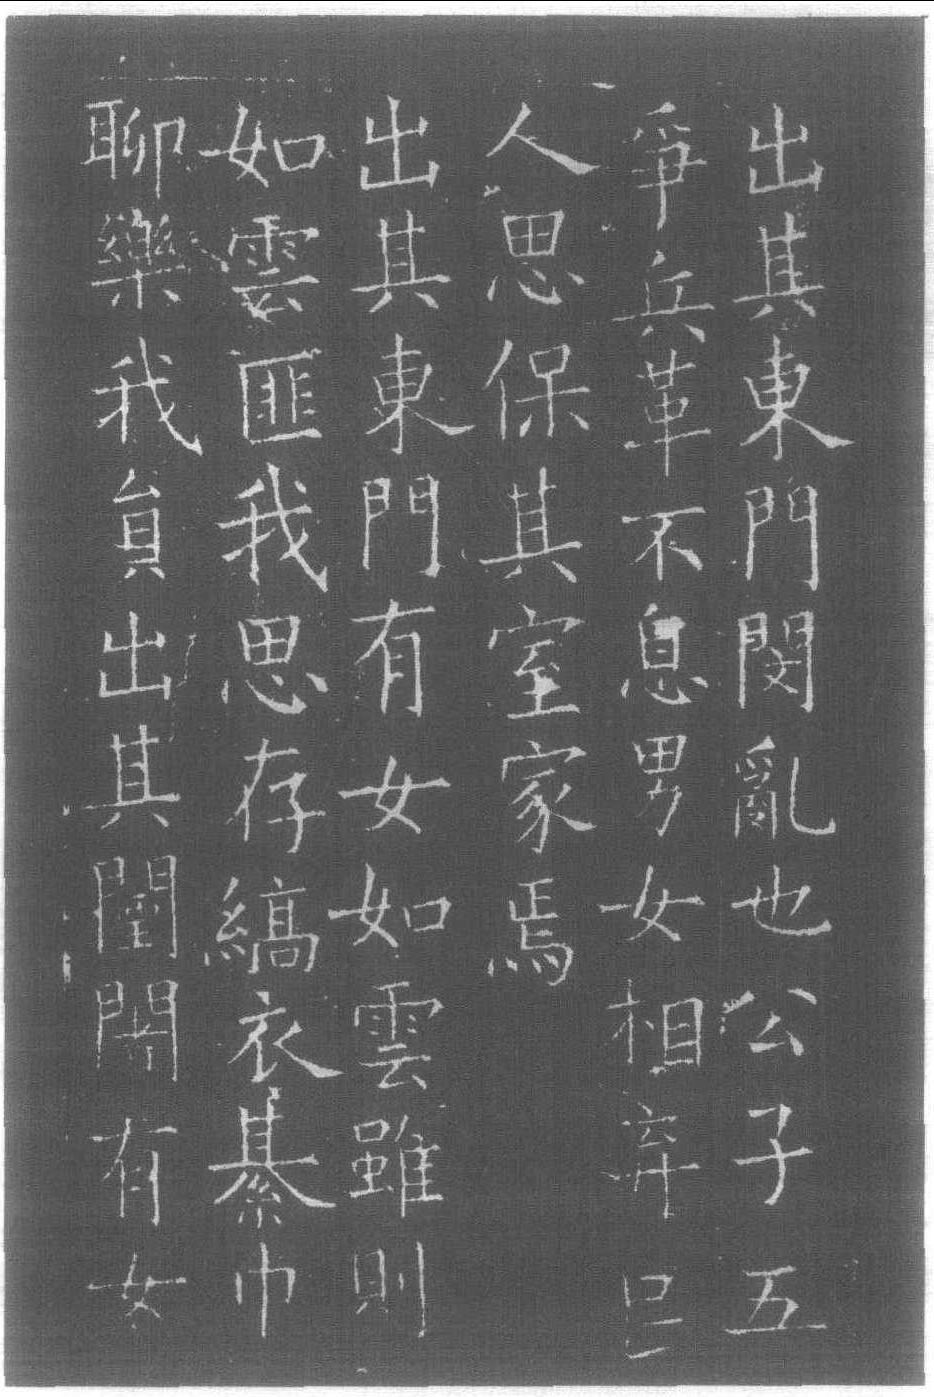 出其東門閔亂也公子五
爭兵革不息男女相弃民
人思保其室家焉
出其東門有女如雲雖則
如雲匪我思存縞衣綦巾
聊樂我員出其闉闍有女